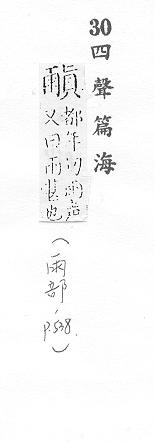 30四聲篇海
都年切雨声
又曰雨也
(雨部, P.538.)